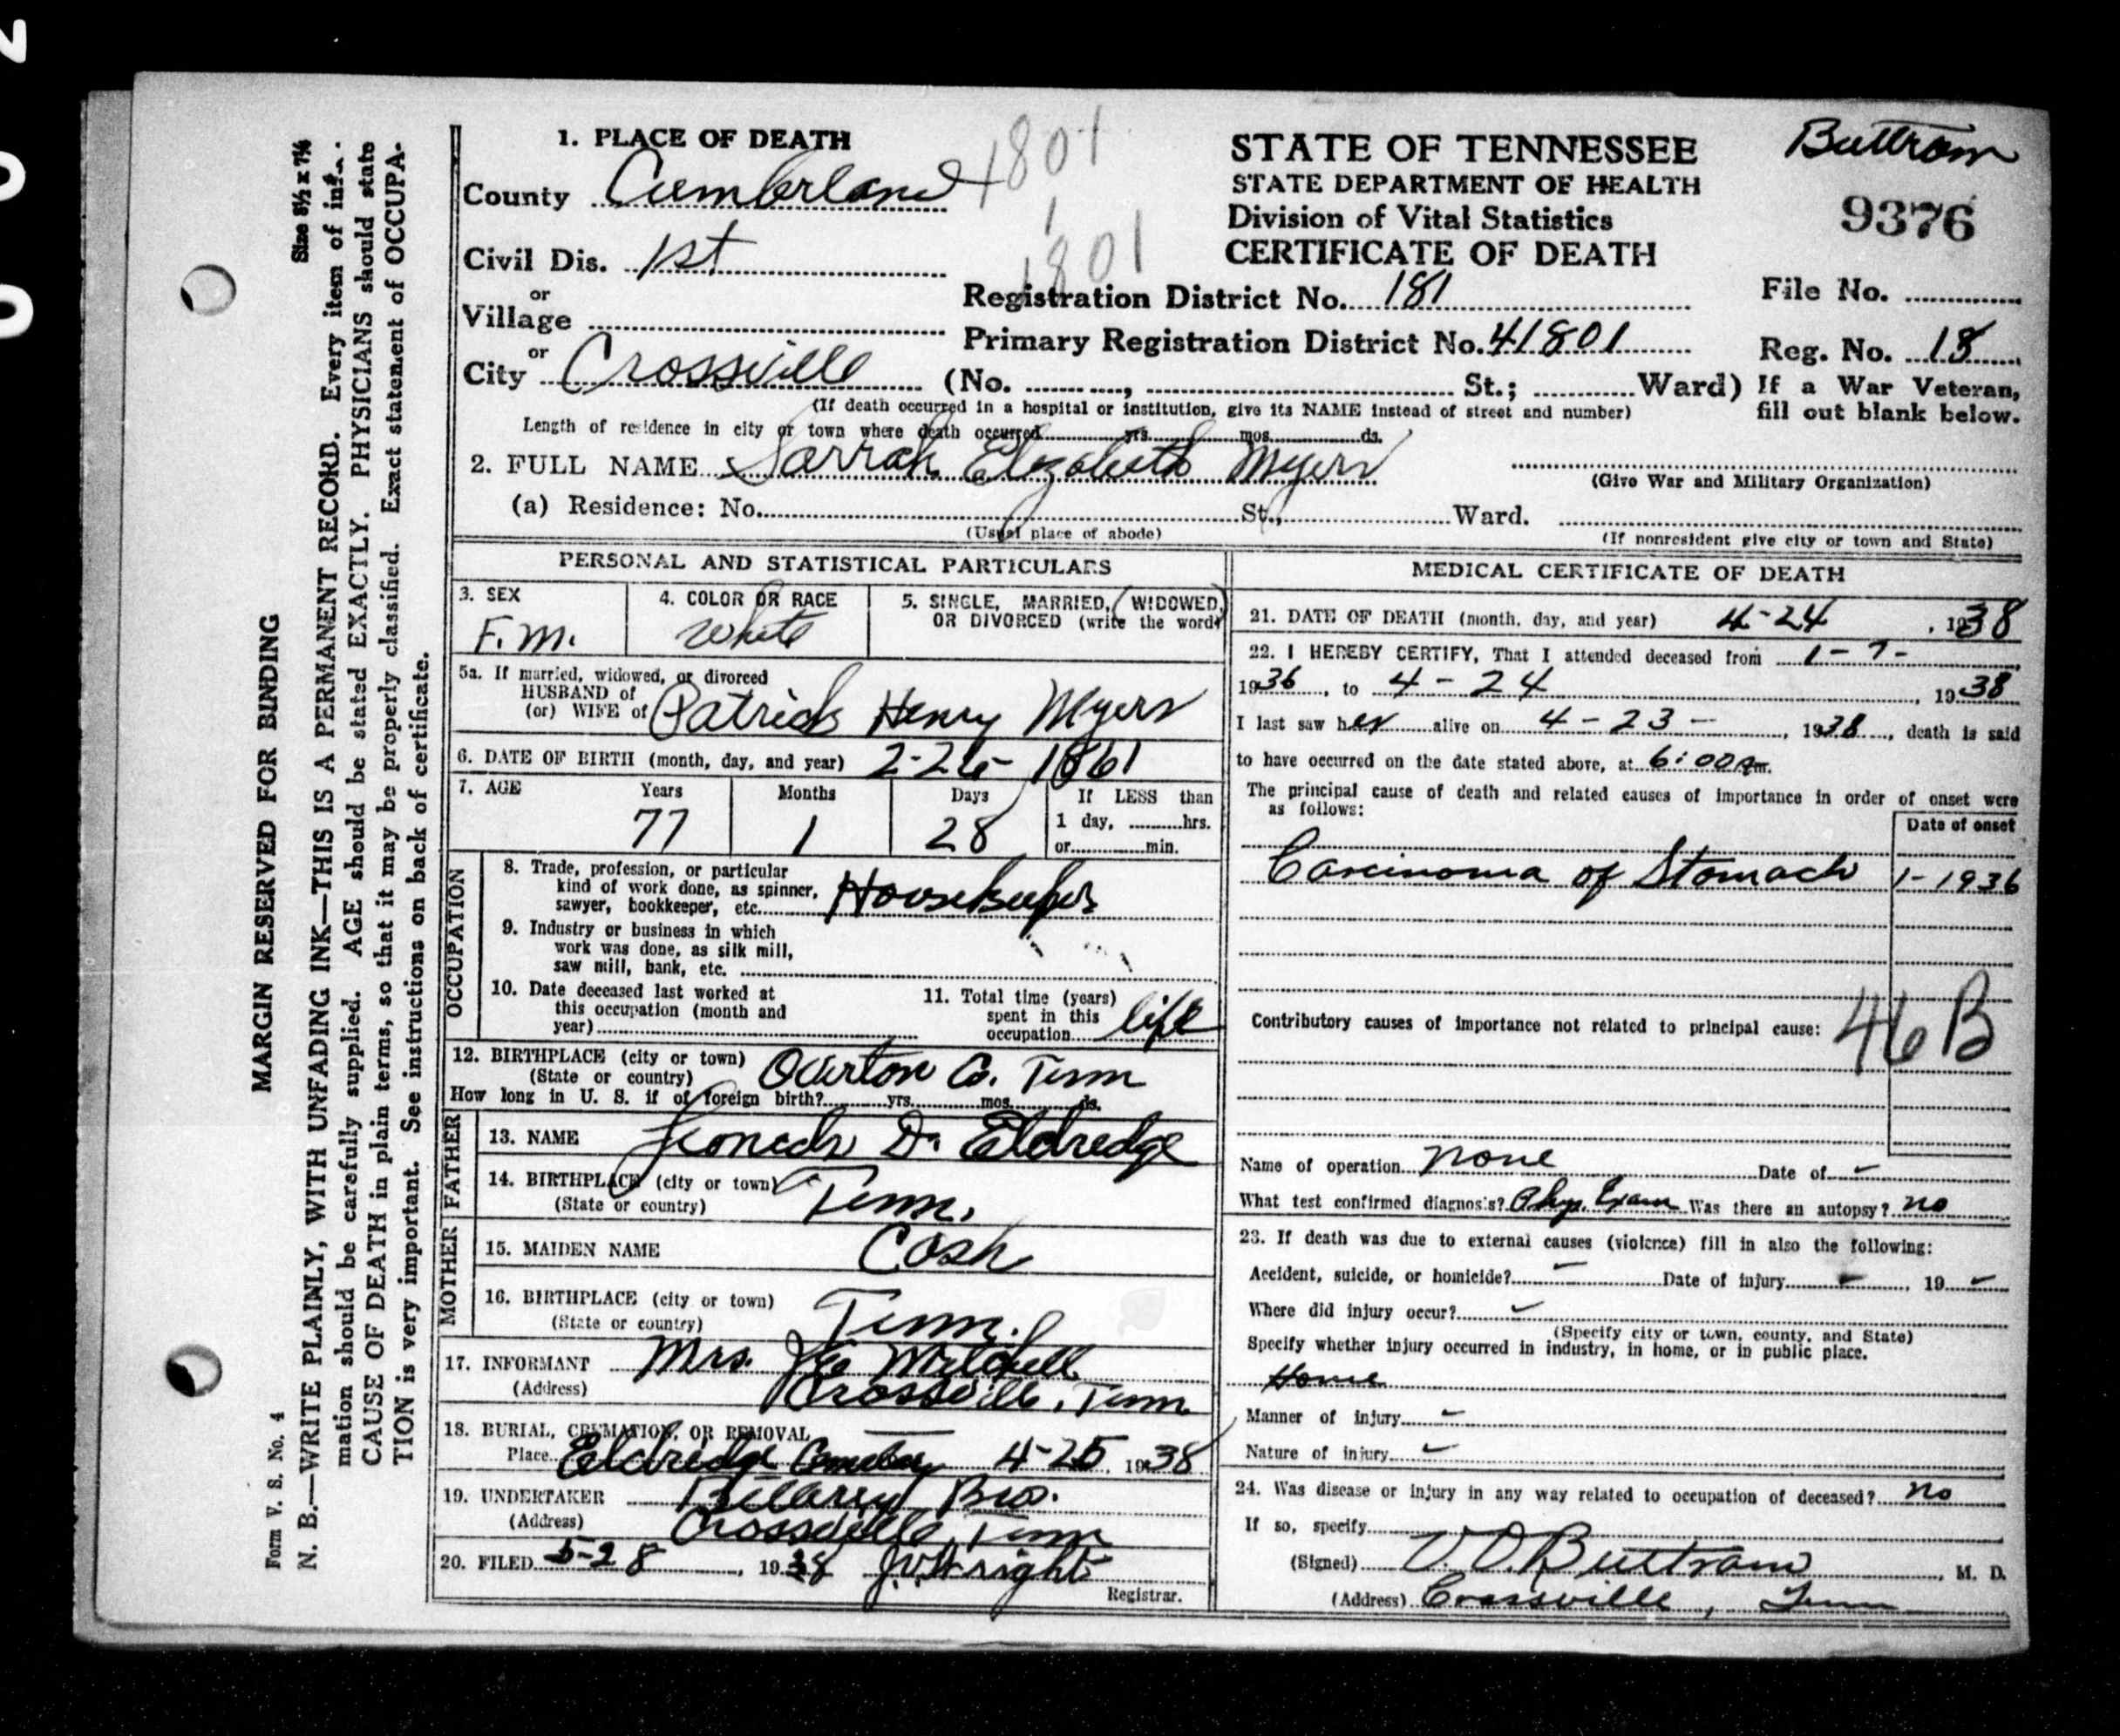 Size 8½ x 7¼
MARGIN RESERVED FOR BINDING
N. B.—WRITE PLAINLY, WITH UNFADING INK—THIS IS A PERMANENT RECORD. Every item of infor-
mation should be carefully supplied. AGE should be stated EXACTLY. PHYSICIANS should state
CAUSE OF DEATH in plain terms, so that it may be properly classified. Exact statement of OCCUPA-
TION is very important. See instructions on back of certificate.
Form V. S. No. 4
1. PLACE OF DEATH
County Cumberland
1801
1
1801
Civil Dis. 1st
or
Village
or
City Crossville (No. ......, ...... St.; ...... Ward)
(If death occurred in a hospital or institution, give its NAME instead of street and number)
STATE OF TENNESSEE
STATE DEPARTMENT OF HEALTH
Division of Vital Statistics
CERTIFICATE OF DEATH
Registration District No. 181
Primary Registration District No. 41801
Buttram
9376
File No.
Reg. No. 18
If a War Veteran,
fill out blank below.
Length of residence in city or town where death occurred yrs. mos. ds.
2. FULL NAME Sarrah Elizabeth Myers
(Give War and Military Organization)
(a) Residence: No. St., Ward.
(Usual place of abode)
(If nonresident give city or town and State)
PERSONAL AND STATISTICAL PARTICULARS
3. SEX
F.M.
4. COLOR OR RACE
White
5. SINGLE, MARRIED, WIDOWED,
OR DIVORCED (write the word)
5a. If married, widowed, or divorced
HUSBAND of
(or) WIFE of Patrick Henry Myers
6. DATE OF BIRTH (month, day, and year) 2-26-1861
7. AGE Years Months Days If LESS than
77 1 28 1 day, ......hrs.
or......min.
OCCUPATION
8. Trade, profession, or particular
kind of work done, as spinner,
sawyer, bookkeeper, etc. Housekeeper
9. Industry or business in which
work was done, as silk mill,
saw mill, bank, etc.
10. Date deceased last worked at
this occupation (month and
year)
11. Total time (years)
spent in this
occupation life
12. BIRTHPLACE (city or town)
(State or country) Overton Co. Tenn
How long in U. S. if of foreign birth? yrs. mos. ds.
FATHER
13. NAME D. Eldredge
14. BIRTHPLACE (city or town)
(State or country) Tenn.
MOTHER
15. MAIDEN NAME Cash
16. BIRTHPLACE (city or town)
(State or country) Tenn.
17. INFORMANT Mrs. Mitchell
(Address) Crossville, Tenn.
18. BURIAL, CREMATION, OR REMOVAL
Place Eldridge Cemetery 4-25, 1938
19. UNDERTAKER Bro.
(Address) Crossville, Tenn
20. FILED 5-28, 1938 J.W. Wright
Registrar.
MEDICAL CERTIFICATE OF DEATH
21. DATE OF DEATH (month, day, and year) 4-24, 1938
22. I HEREBY CERTIFY, That I attended deceased from 1-7-
1936, to 4-24, 1938
I last saw her alive on 4-23-, 1938, death is said
to have occurred on the date stated above, at 6:00 am.
The principal cause of death and related causes of importance in order of onset were
as follows:
Date of onset
Carcinoma of Stomach 1-1936
Contributory causes of importance not related to principal cause:
46B
Name of operation none Date of -
What test confirmed diagnosis? Phy. Exam Was there an autopsy? no
23. If death was due to external causes (violence) fill in also the following:
Accident, suicide, or homicide? - Date of injury -, 19 -
Where did injury occur? -
(Specify city or town, county, and State)
Specify whether injury occurred in industry, in home, or in public place.
Home
Manner of injury -
Nature of injury -
24. Was disease or injury in any way related to occupation of deceased? no
If so, specify
(Signed) V. O. Buttram, M. D.
(Address) Crossville, Tenn